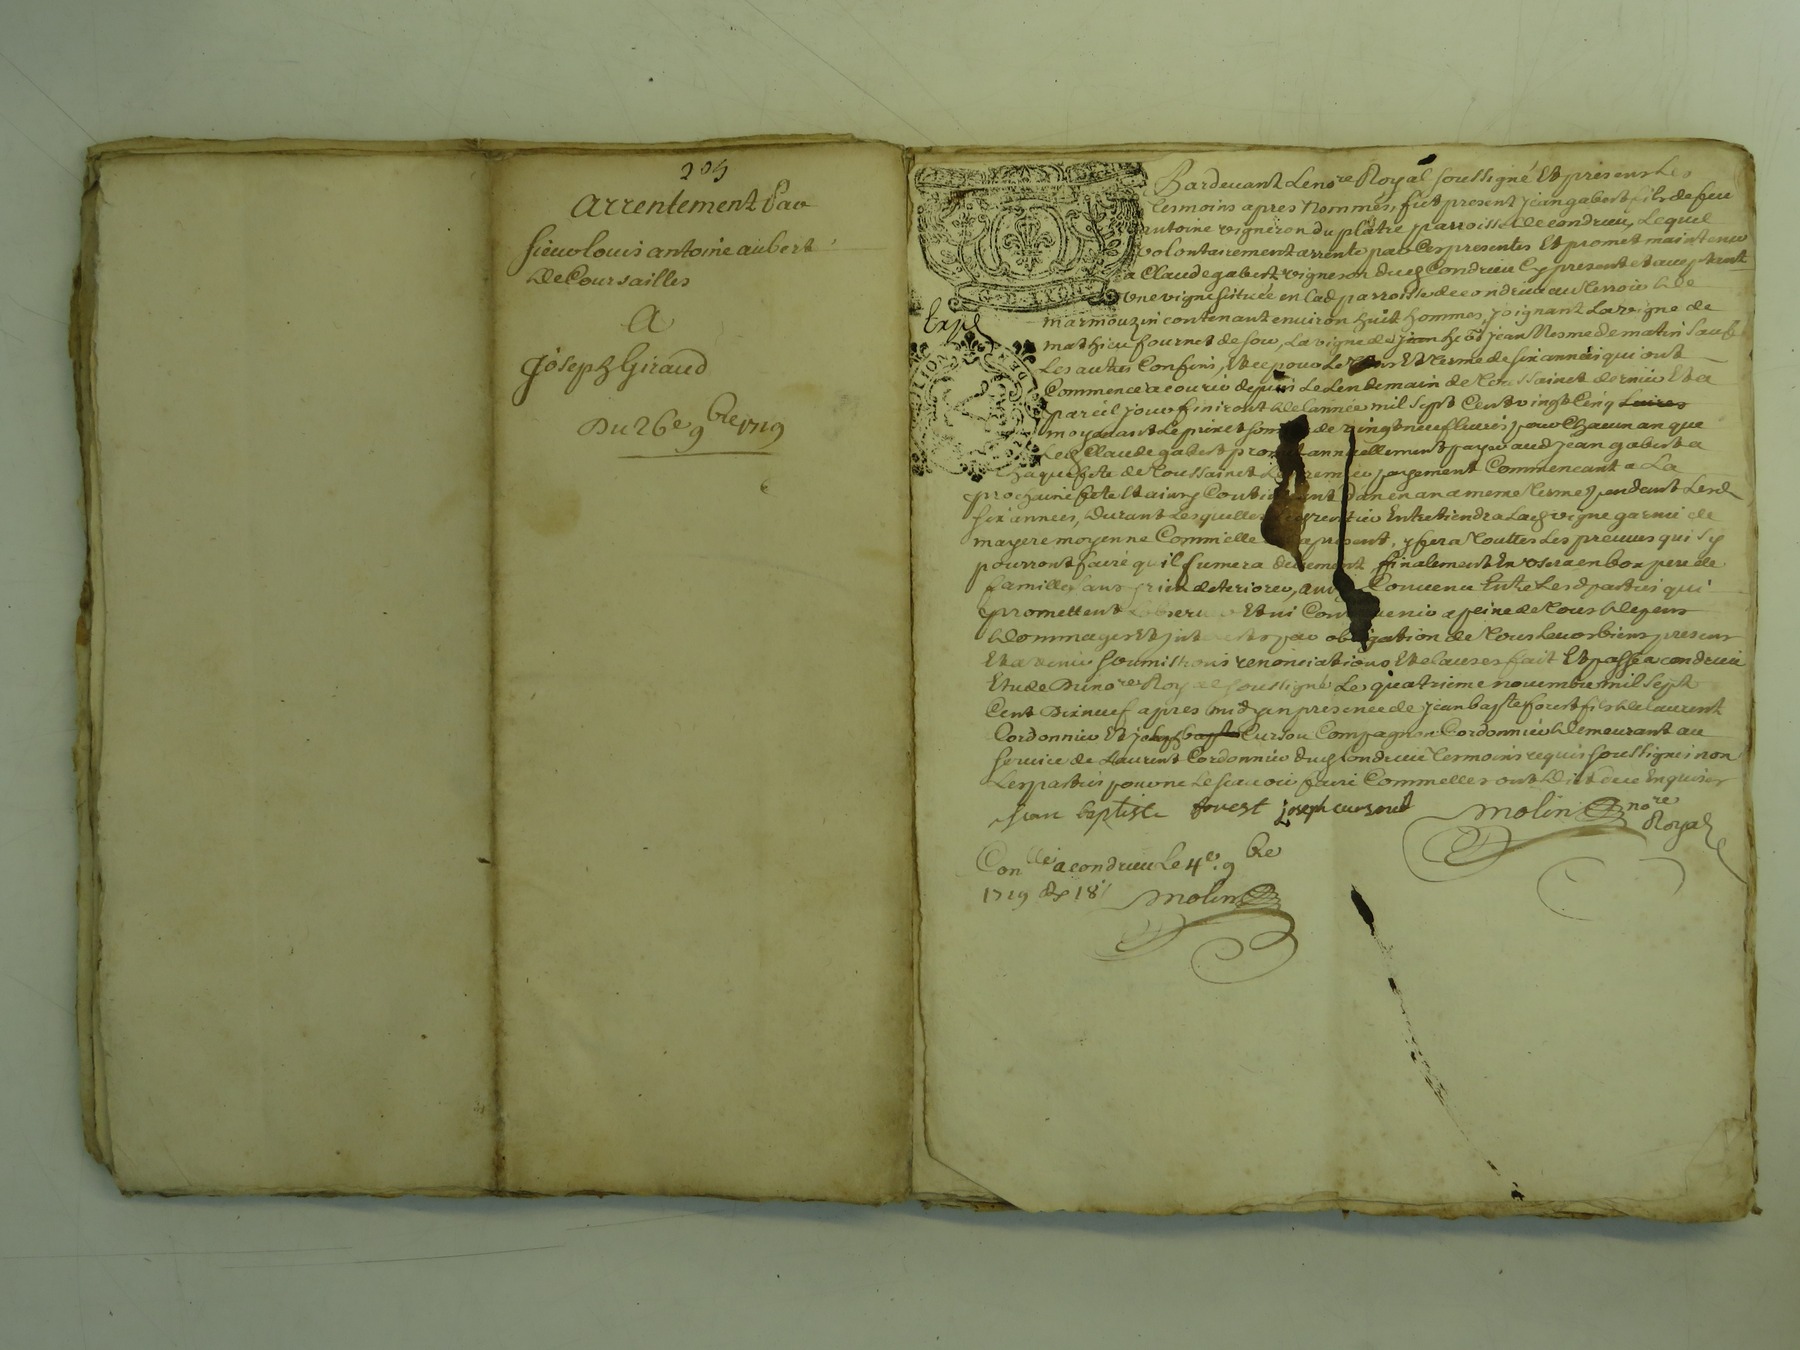 205
arrentement Par
sieur louis antoine aubert
de Coursailles
A
Joseph Giraud
Du 26e 9bre 1719
Pardevant Le nore Royal soussigné Et presens Les
tesmoins apres Nommés, fut present jean gabert fils de feu
antoine vigneron du plâtre parroisse de condrieu, Lequel
volontairement arrente par Ces presentes Et promet maintenir
a Claude gabert vigneron dud Condrieu Cy present et acceptant
Une vigne située en lad parroisse de condrieu au terroir de
marmouzin contenant environ huit hommes, joignant La vigne de
mathieu fournet de soir, La vigne de jean Mesme de matin sauf
Les autres Confins, Et ce pour Le tems Et terme de six années qui ont
Commencé a courir depuis Le Lendemain de toussainct dernier Et a
pareil jour finiront de l'année mil sept Cent vingt Cinq
moyenant Le prix et somme de vingt neuf livres pour Chacun an que
Led Claude gabert promet annuellement payer aud jean gabert a
Chaque fete de toussainct Le premier payement Commencant a La
prochaine fete Et ainsy Continuant d'an en an a meme terme pendant Lesd
six années, durant Lesquelles Entretiendra Lad vigne garnie de
mayere moyenne Comm'elle a present, y fera touttes Les preuves qui s'y
pourront faire qu'il fumera duement finalement En Usera en bon pere de
famille sans rien deteriorer, ainsy Convenu Entre Lesd parties qui
promettent observer Et ni Contrevenir a peine de tous depens
dommages Et interests par obligation de tous Leurs biens presens
Et a venir soumissions renonciations Et clauses fait Et passé a condrieu
Etude Du nore Royal soussigné Le quatrieme novembre mil sept
Cent Dix neuf apres midy en presence de jean baptiste forest fils de laurent
Cordonnier Et Cursou Compagnon Cordonnier demeurant au
service de Laurent Cordonnier dud Condrieu tesmoins requis soussignes non
Les parties pour ne Le scavoir faire Comm'elles ont dit de ce Enquises
jean baptiste forest joseph cursout molin nore
Royal
Conlle a condrieu Le 4e 9bre
1719 18s molin